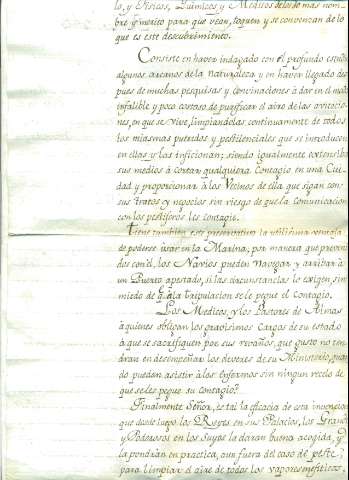 to, y Físicos, Químicos y Médicos de los de mas nom-
bre y merito para que vean, toquen y se convenzan de lo
que es este descubrimiento.
Consiste en haver indagado con el profundo estudio
algunos arcanos de la naturaleza y en haver llegado des
pues de muchas pesquisas y convinaciones à dar en el modo
infalible y poco costoso de purificar el aire de las
nes, en que se vive, limpiandolas continuamente de todos
los miasmas putridos y pestilenciales que se introducen
en ellas y las inficionan; siendo igualmente extensibles
sus medios à cortar qualquiera Contagio en una Ciu-
dad y proporcionar à los Vecinos de ella que sigan con
sus tratos y negocios sin riesgo de que la comunicacion
con los pestiferos les contagie.
Tiene tambien este preservativo la utilisima ventaja
de poderse usar en la Marina, por manera que preveni
dos con èl, los Navios pueden navegar y arribar à
un Puerto apestado, si las circunstancias lo exigen, sin
miedo de q. à la tripulacion se le pegue el contagio.
Los Medicos, y los Pastores de Almas
à quienes obligan los gravisimos cargos de su estado
à que se sacrifiquen por sus revaños, que gusto no ten
dran en desempeñar los deveres de su Ministerio, quan
do pueden asistir à los Enfermos sin ningun recelo de
que se les pegue su contagio?
Finalmente Señor, es tal la eficacia de esta invencion
que desde luego los Reyes en sus Palacios, los Grandes
y Poderosos en los suyos la daran buena acogida, y
la pondran en practica, aun fuera del caso de peste,
para limpiar el aire de todos los vapores mefiticos,